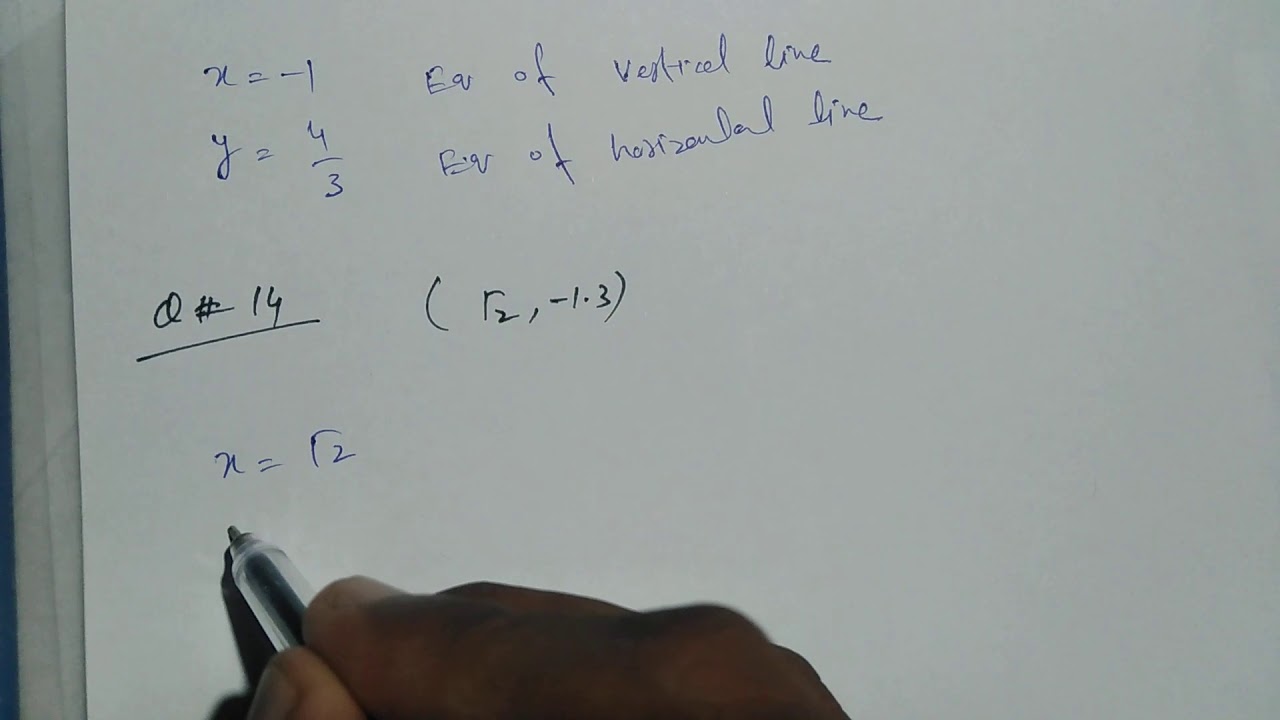 x = -1 Eq of vertical line
y = 4/3 Eq of horizontal line
Q # 14 (√2, -1.3)
x = √2